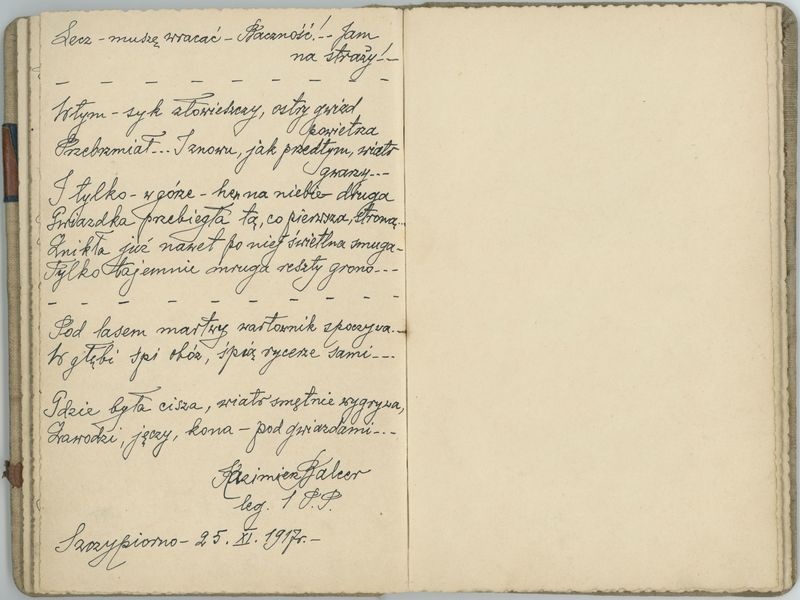 Lecz - muszę wracać - Baczność!.. Jam
na straży!..
- - - - - - - - -
Wtym - syk złowieszczy, ostry gwizd
powietrza
Przebrzmiał... I znowu, jak przedtym, wiatr
gwarzy...
I tylko - w górze - hen na niebie druga
Gwiazdka przebiegła tą, co pierwsza, stroną...
Znikła już nawet po niej świetlna smuga -
Tylko tajemnie mruga reszty grono...
- - - - - - - - - -
Pod lasem martwy wartownik spoczywa..
W głębi śpi obóz, śpią rycerze sami...
Gdzie była cisza, wiatr smętnie wygrywa,
Zawodzi, jęczy, kona - pod gwiazdami...
Kazimierz Balcer
leg. 1 P.P.
Szczypiorno - 25. XI. 1917r. -